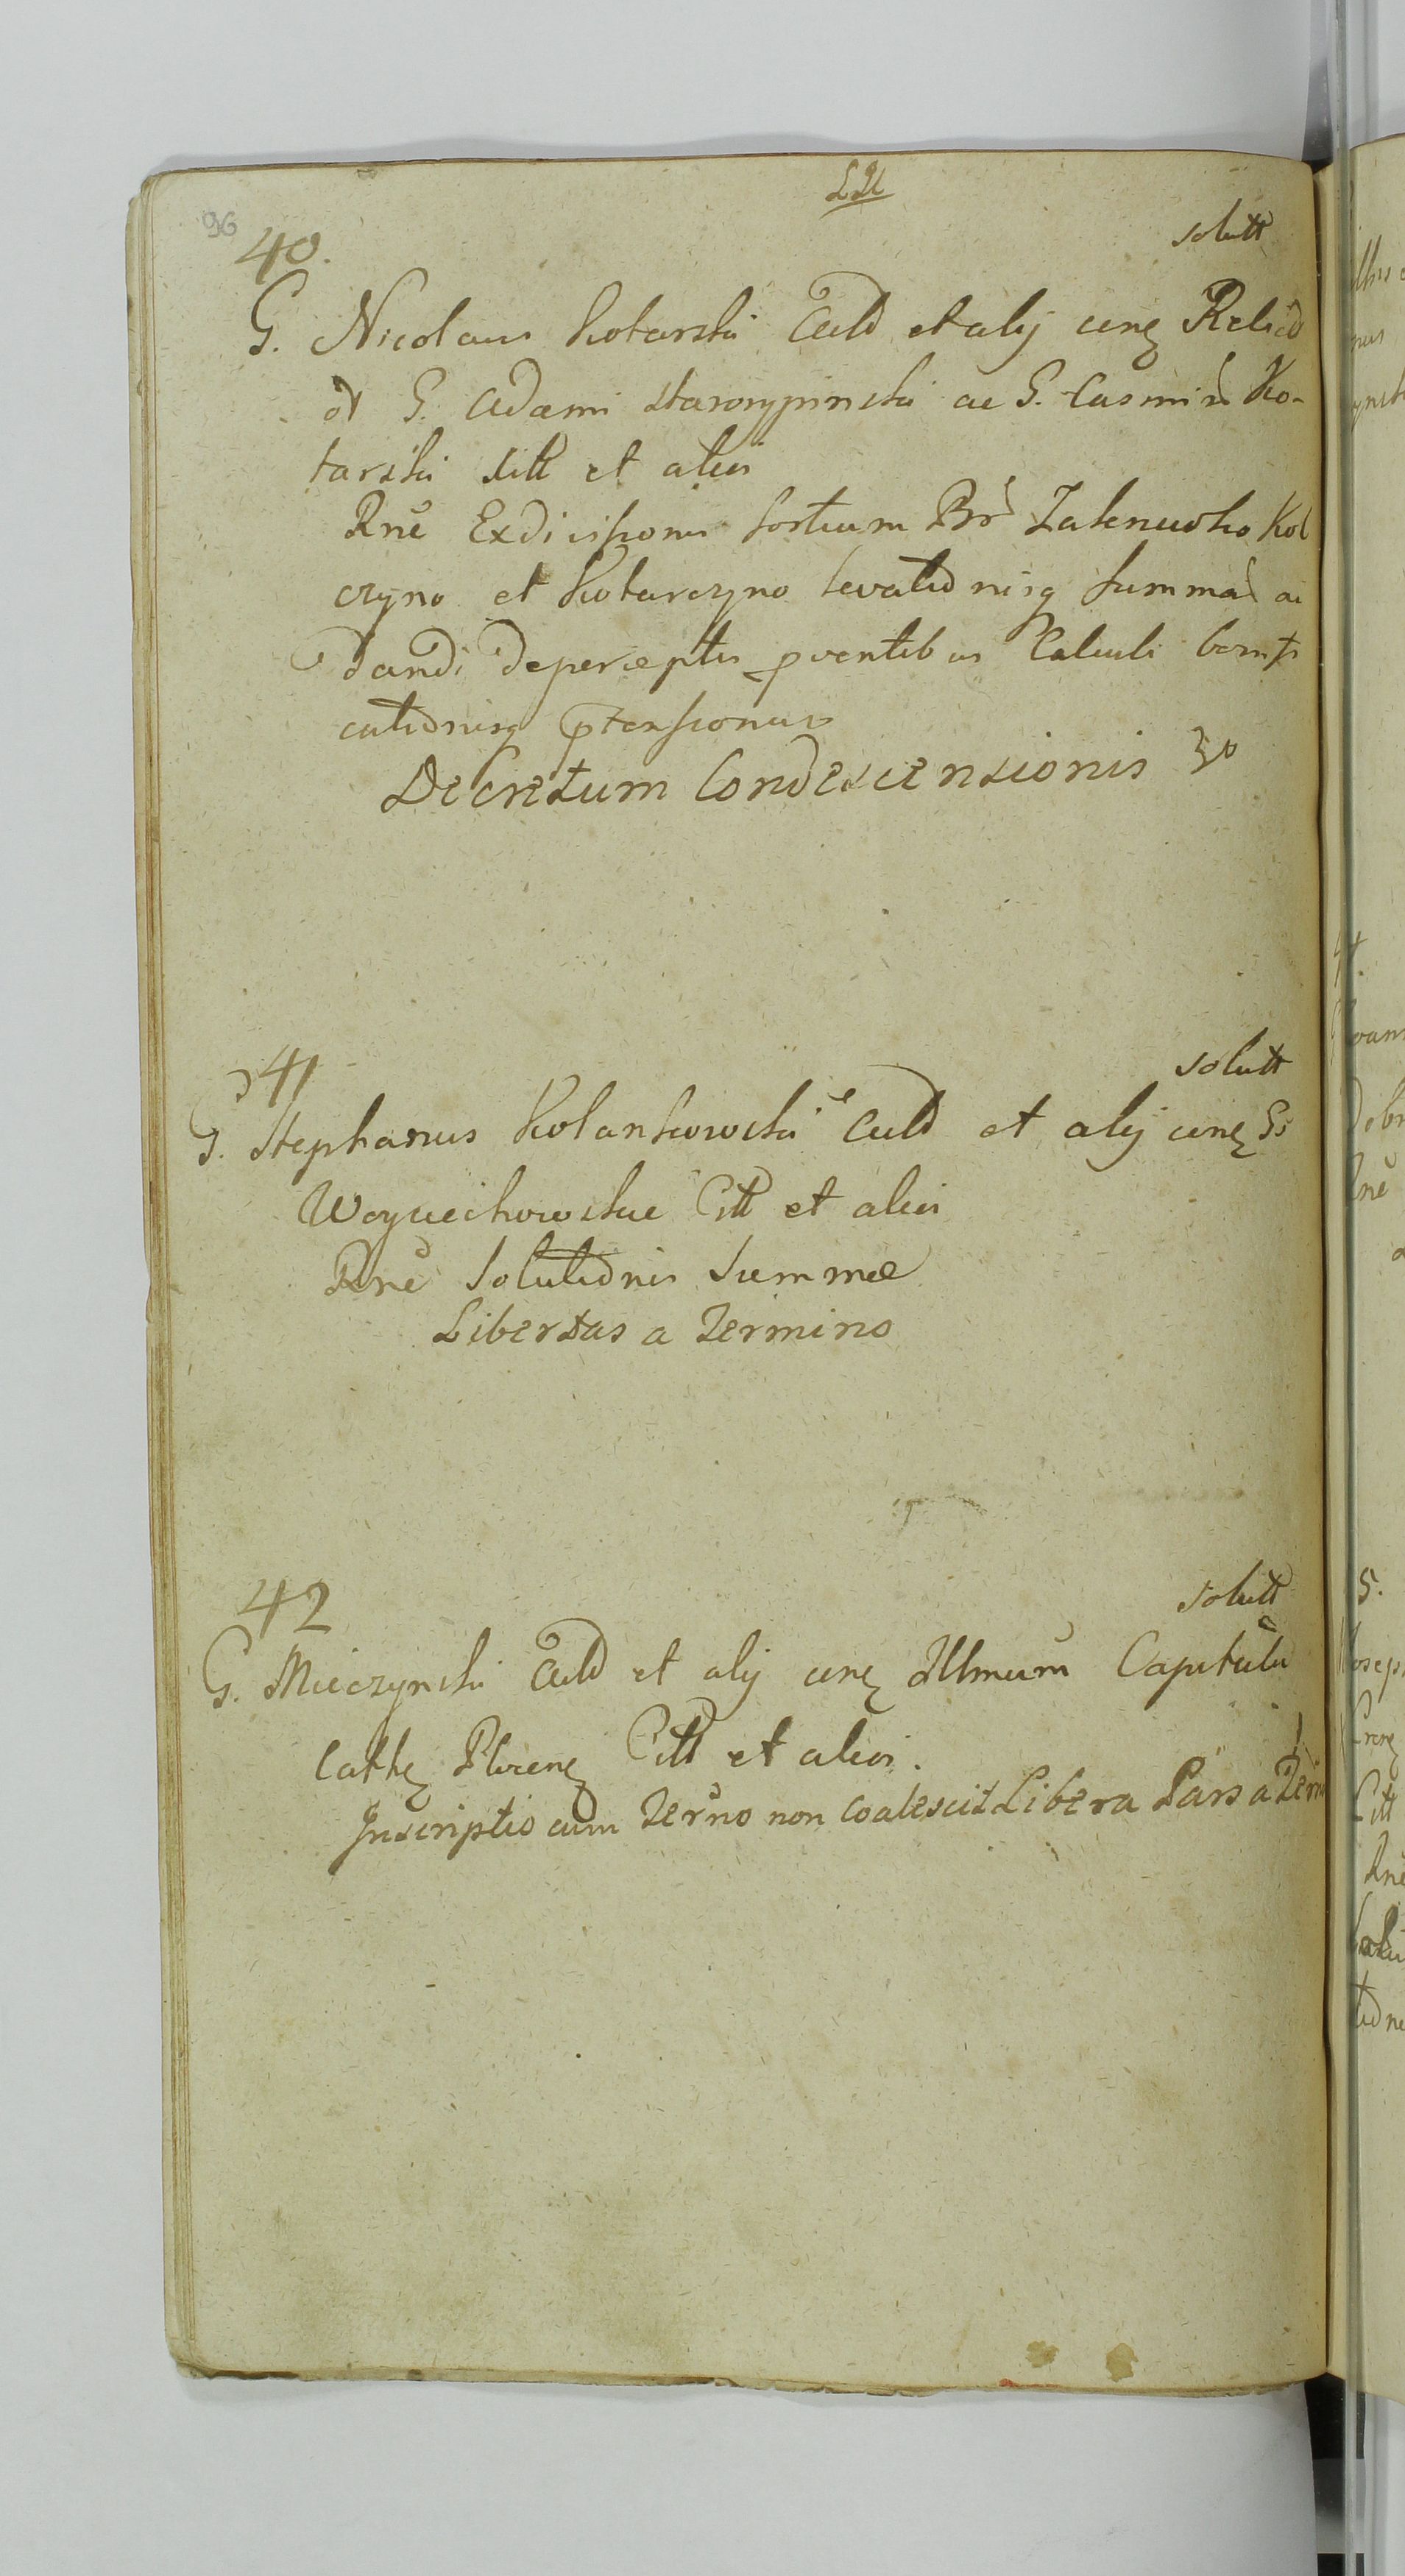 96
40.
solutt
G. Nicolaus Kotarski Actd et alij cone Relicd
et G. Adami Starorypinski ac G. Casimiri Ko-
tarski Citt et alios
Rne Exdivisionis sortium Bor Zalenucho Kot
czyno et Kotarczyno levatidnisq summad ac
dandi de perceptis pventibus Calculi
catidnisq ptensionum
Decretum Condescensionis
41
solutt
G. Stephanus Kolankowski Actd et alij cone Gs
Woyciechowskie Citt et alios
Rne Solutidnis Summae
Libertas a Termino
42
solutt
G. Mieczynski Actd et alij cone Illmum Capitulu
Cathe Plocene Citt et alios.
Inscriptio cum Terno non coalescit Libera Pars a Terno